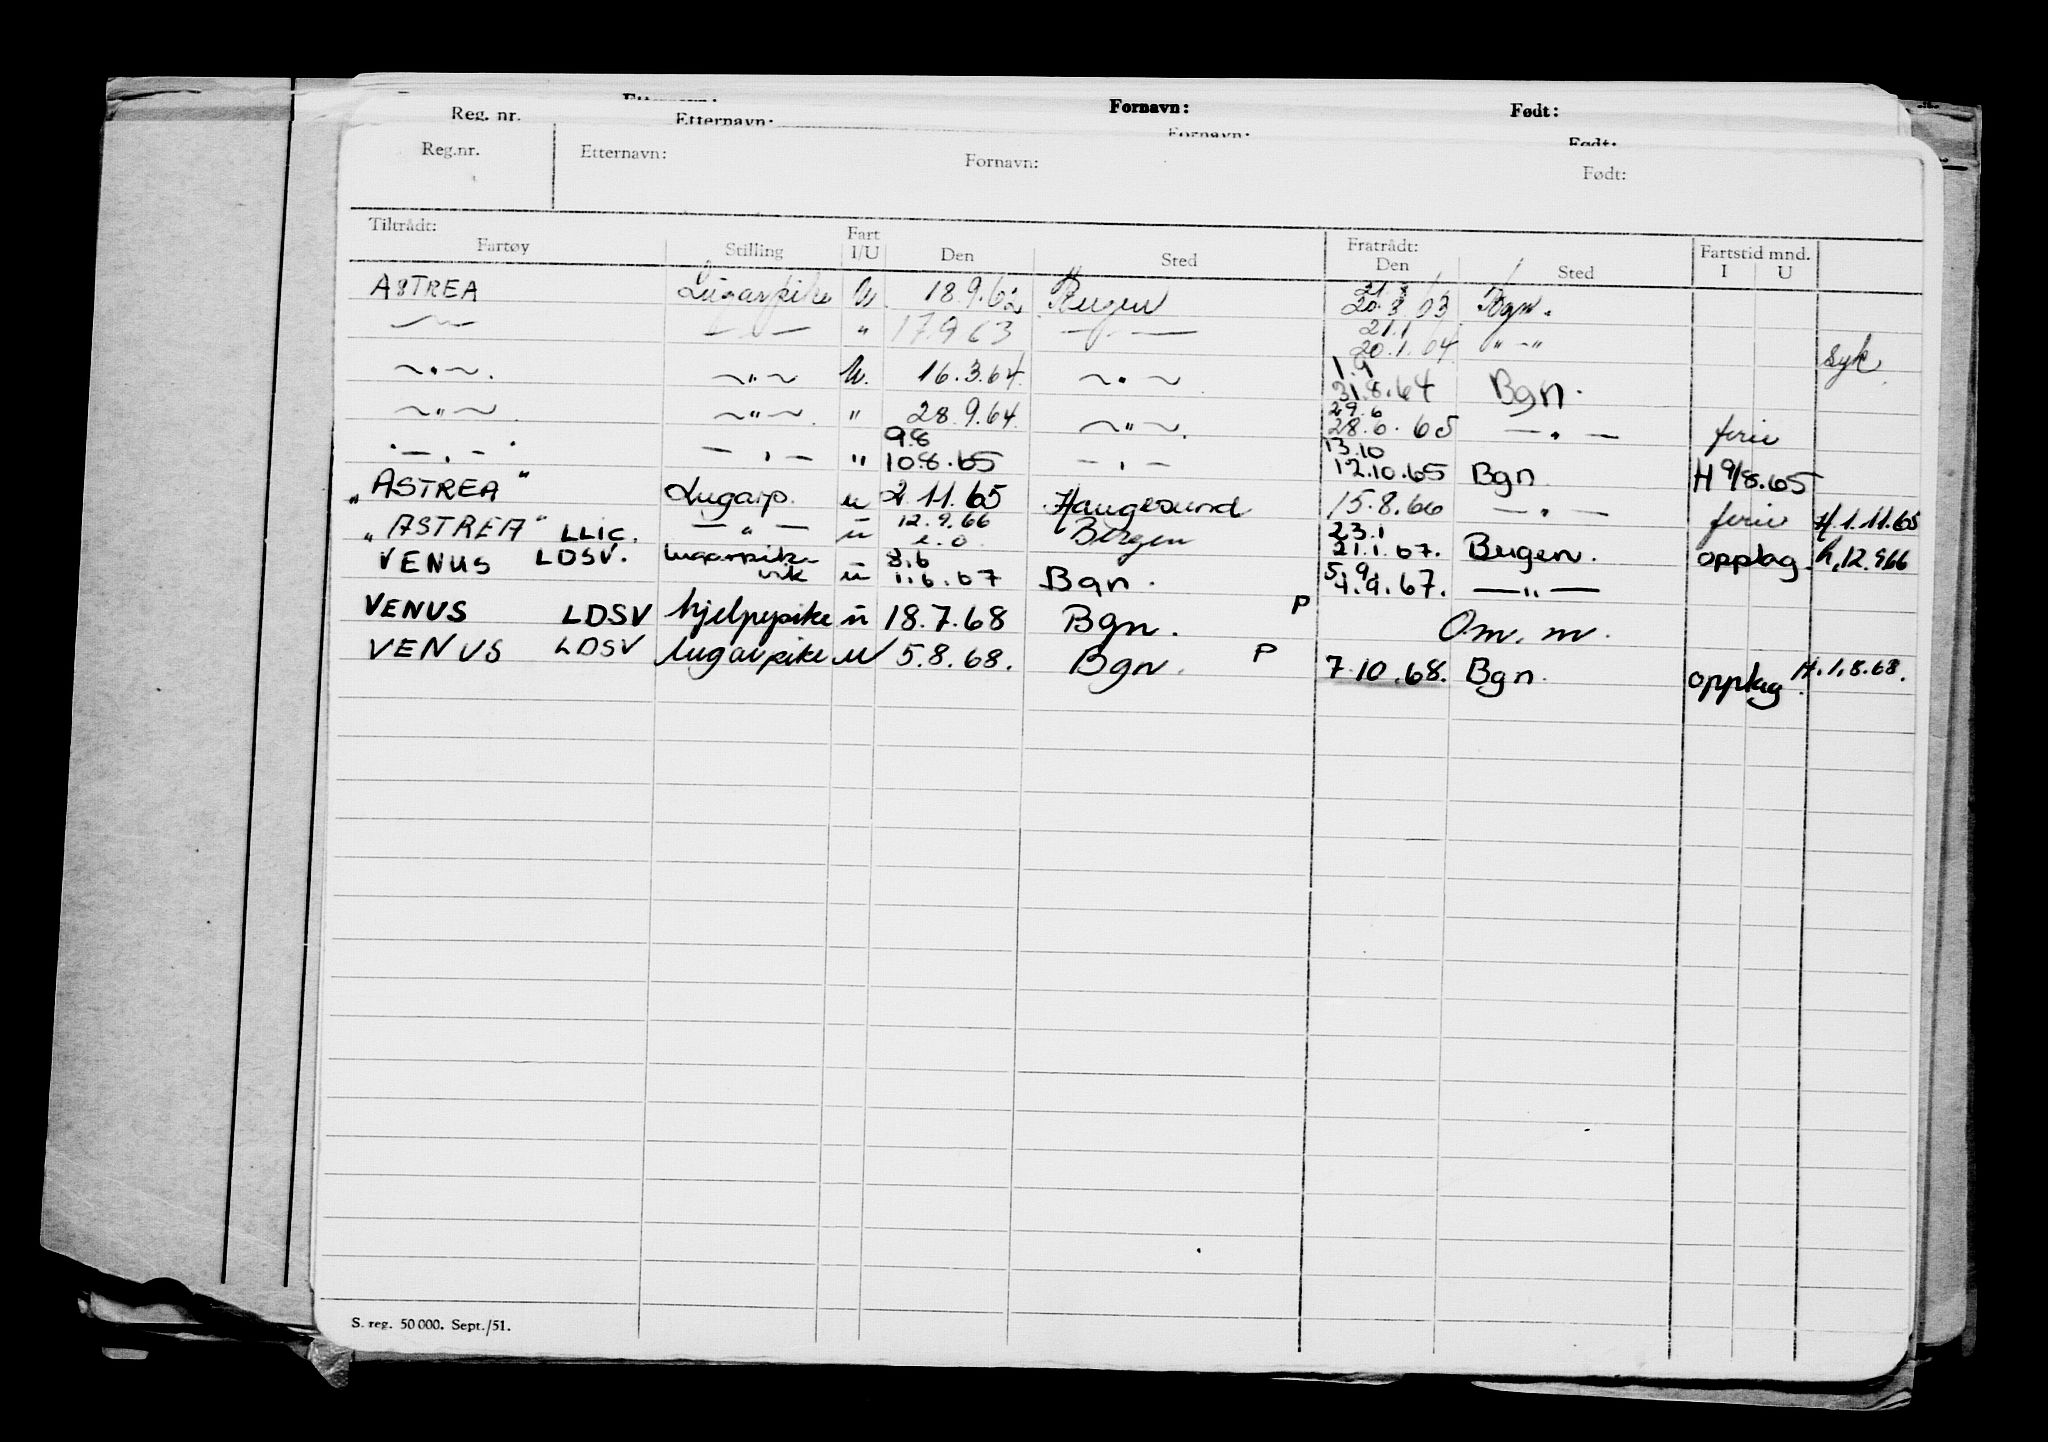 Reg. nr. Etternavn: Fornavn: Født:
Reg.nr. Etternavn: Fornavn: Født:
Tiltrådt: Fratrådt:
Fartøy Stilling Fart I/U Den Sted Den Sted Fartstid mnd. I U
ASTREA Lugarpike U 18.9.62 Bergen 21.3 20.3.63 Bgn.
—〃— —〃— 〃 17.9.63 —〃— 21.1 20.1.64 〃—〃 syk
—〃— —〃— U. 16.3.64. —〃— 1.9 31.8.64 Bgn.
—〃— —〃— 〃 28.9.64. —〃— 29.6 28.6.65 —〃— ferie
—〃— —〃— 〃 9.8 10.8.65 —〃— 13.10 12.10.65 Bgn. H 9/8.65
"ASTREA" Lugarp. u 2.11.65 Haugesund 15.8.66 —〃— ferie H.1.11.65
"ASTREA" LLIC. —〃— u 12.9.66 Bergen 23.1 21.1.67. Bergen. opplag. h.12.9.66
VENUS LDSV. lugarpike vik u 8.6 1.6.67 Bgn. 5.9 4.9.67. —〃—
VENUS LDSV hjelpepike u 18.7.68 Bgn. P Om. m.
VENUS LDSV lugarpike U 5.8.68. Bgn. P 7.10.68. Bgn. opplag. H.1.8.68.
S. reg. 50 000. Sept./51.